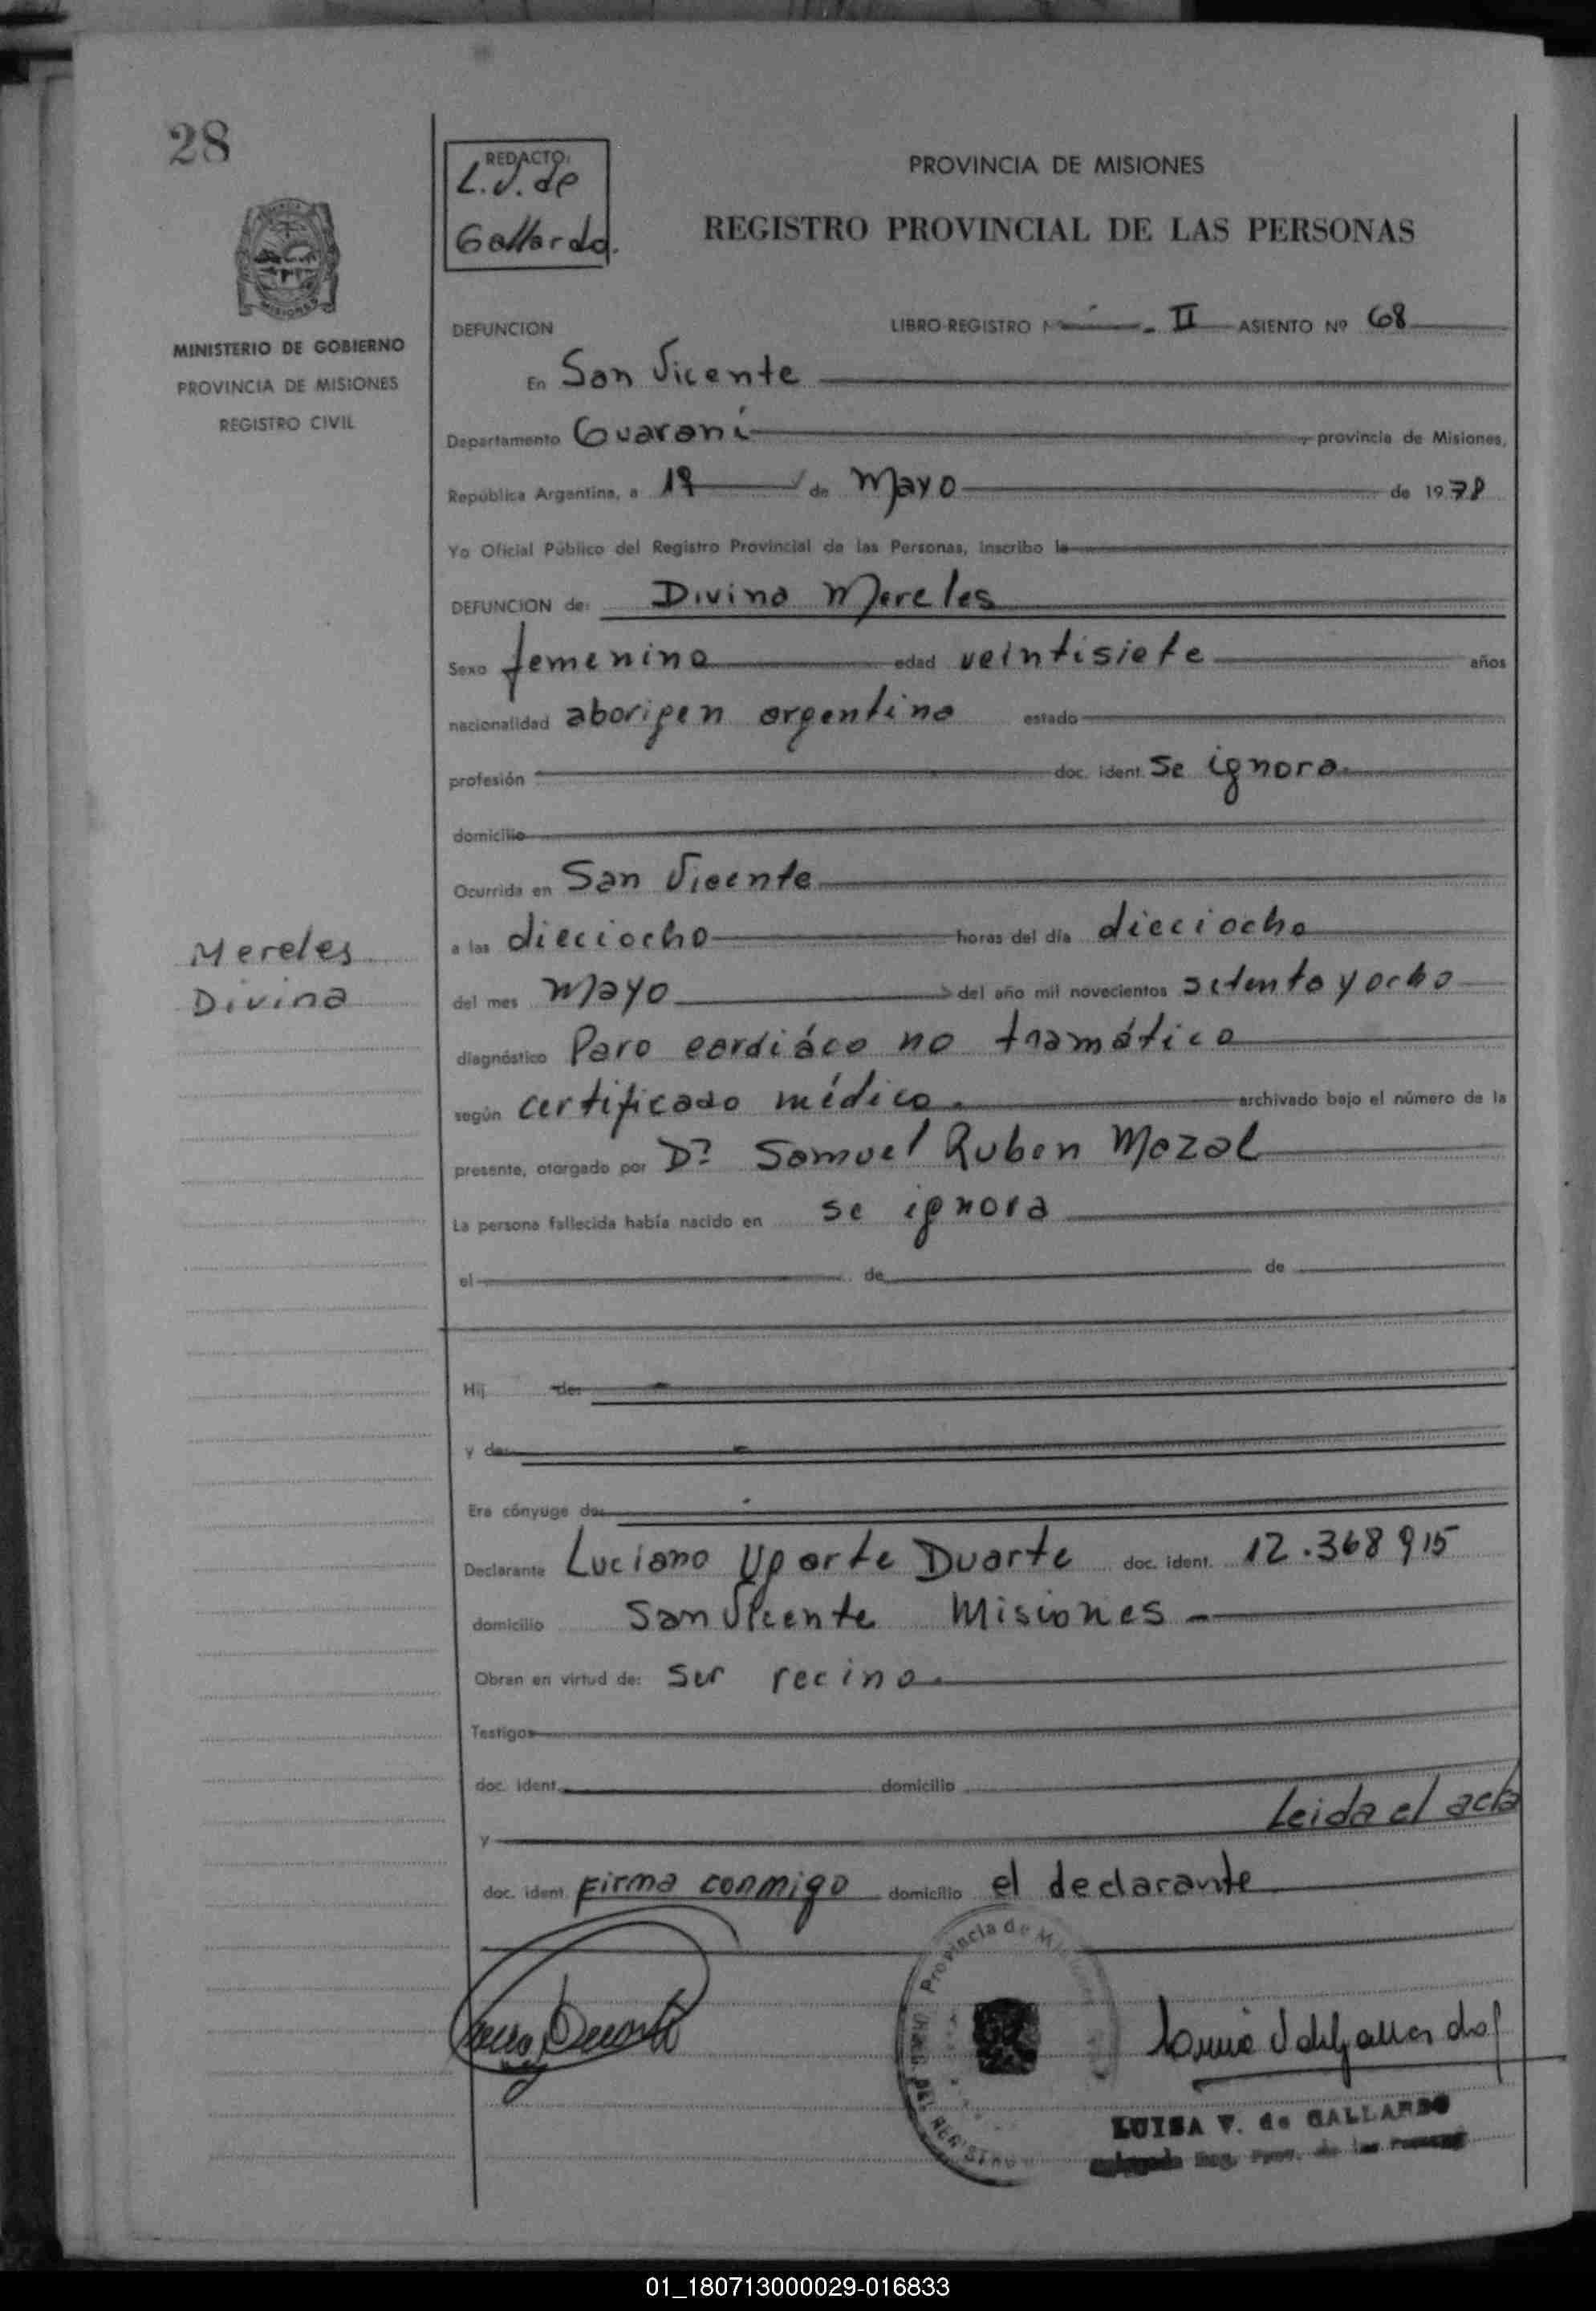 28
REDACTO:
L.V. de
Gallardo.
PROVINCIA DE MISIONES
REGISTRO PROVINCIAL DE LAS PERSONAS
MISIONES
MINISTERIO DE GOBIERNO
PROVINCIA DE MISIONES
REGISTRO CIVIL
DEFUNCION LIBRO REGISTRO II ASIENTO Nº 68
En San Vicente
Departamento Guaraní provincia de Misiones,
República Argentina, a de Mayo de 1978
Yo Oficial Público del Registro Provincial de las Personas, inscribo la
DEFUNCION de: Divina Mereles
Sexo femenino edad veintisiete años
nacionalidad aborigen argentina estado
profesión doc. ident. se ignora.
domicilio
Ocurrida en San Vicente
a las dieciocho horas del día dieciocho
del mes Mayo del año mil novecientos setenta y ocho
Mereles
Divina
diagnóstico Paro cardiáco no tramático
según certificado médico. archivado bajo el número de la
presente, otorgado por Dr. Samuel Ruben Mazal
La persona fallecida había nacido en se ignora
el de de
Hij de:
y de:
Era cónyuge de:
Declarante Luciano Duarte doc. ident. 12.368915
domicilio San Vicente Misiones -
Obran en virtud de: ser vecino.
Testigos
doc. ident. domicilio
y Leida el acta
doc. ident. Firma conmigo domicilio el declarante
Provincia de Misiones
DEL REGISTRO
LUISA V. de GALLARDO
Reg. Prov. de las Personas
01_180713000029-016833